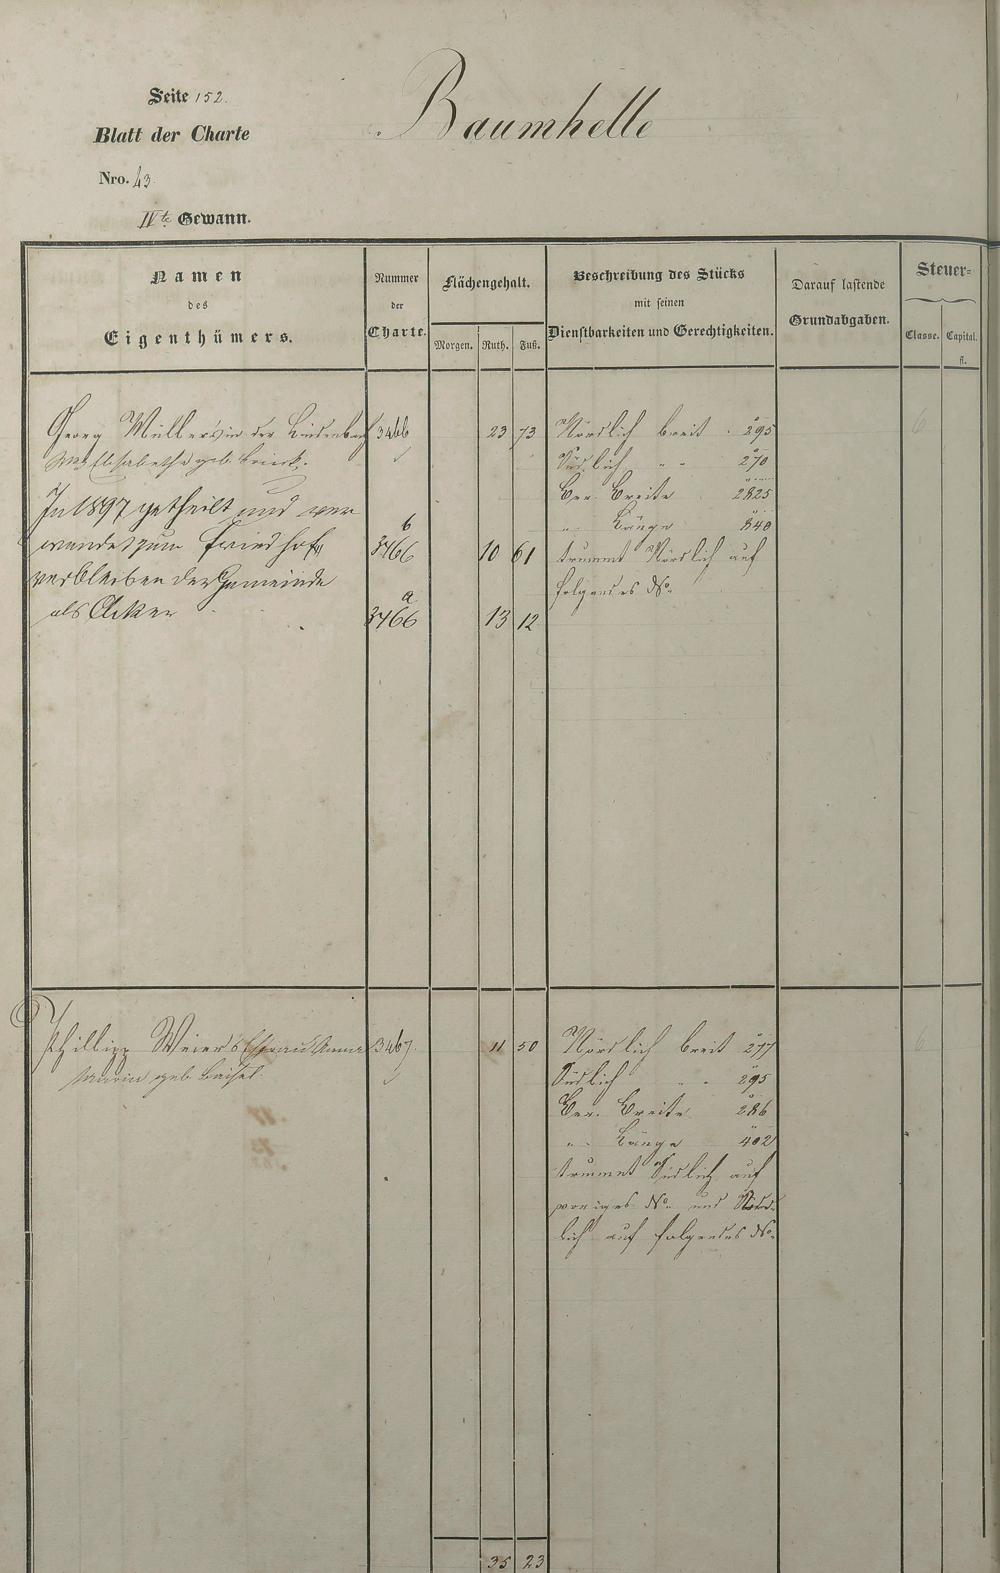 Seite 152.
Baumhelle
Blatt der Charte
Nro. 43
IVte Gewann.
Namen
des
Eigenthümers.
Nummer
der
Charte.
Flächengehalt.
Morgen. Ruth. Fuß.
Beschreibung des Stücks
mit seinen
Dienstbarkeiten und Gerechtigkeiten.
Darauf lastende
Grundabgaben.
Steuer=
Classe. Capital.
fl.
Georg Müller's in der 3466 23 73 Nördlich breit 295
Elisabetha geb. Südlich " " 270
Ber. Breite 2825
In 1897 getheilt und ver
" Länge 840
wendet zum Friedhof, b 3466 10 61 Nördlich auf
verbleiben der Gemeinde
folgendes No.
als Acker a 3466 13 12
Philipp Weier's Ehefrau Anna 3467 11 50 Nördlich breit 277
Maria geb. Südlich " " 295
Ber. Breite 286
" Länge 402
Südlich auf
voriges No. und Nörd-
lich auf folgendes No.
35 23